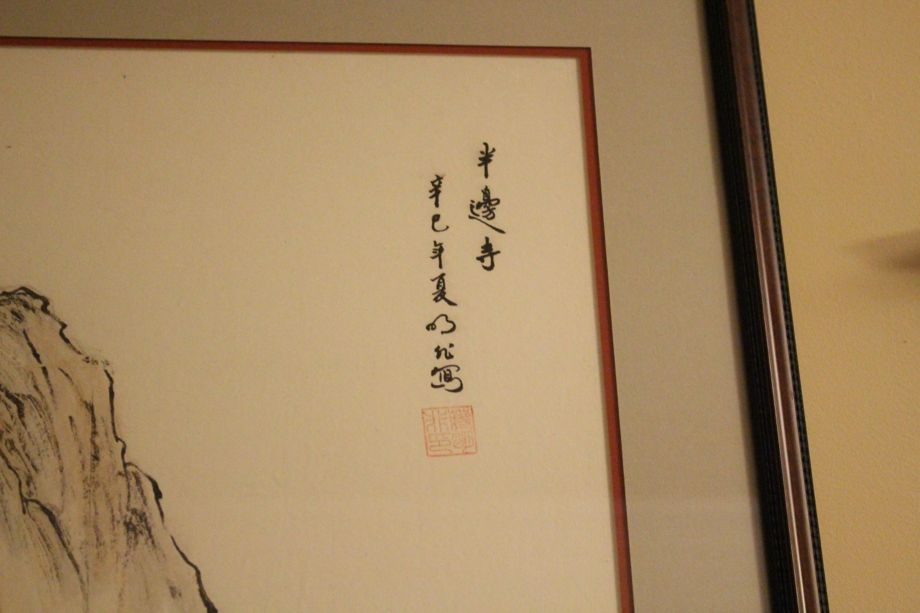 半邊寺
辛巳年夏明非寫